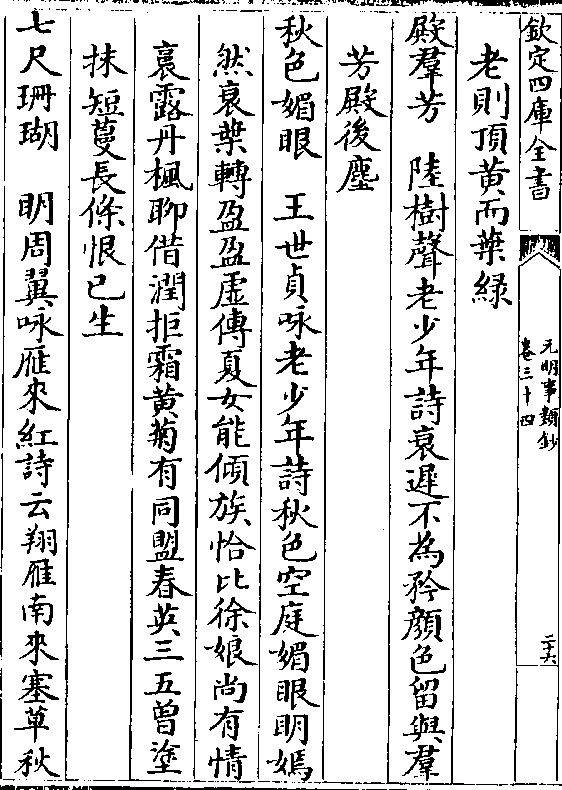 欽定四庫全書
元明事類鈔
卷三十四
二十六
老則頂黃而葉綠
殿羣芳　陸樹聲老少年詩衰遲不為矜顏色留與羣
芳殿後塵
秋色媚眼　王世貞咏老少年詩秋色空庭媚眼明嫣
然衰葉轉盈盈虛傳夏女能傾族恰比徐娘尚有情
裛露丹楓聊借潤拒霜黃菊有同盟春英三五曾塗
抹短蔓長條恨已生
七尺珊瑚　明周翼咏雁來紅詩云翔雁南來塞草秋